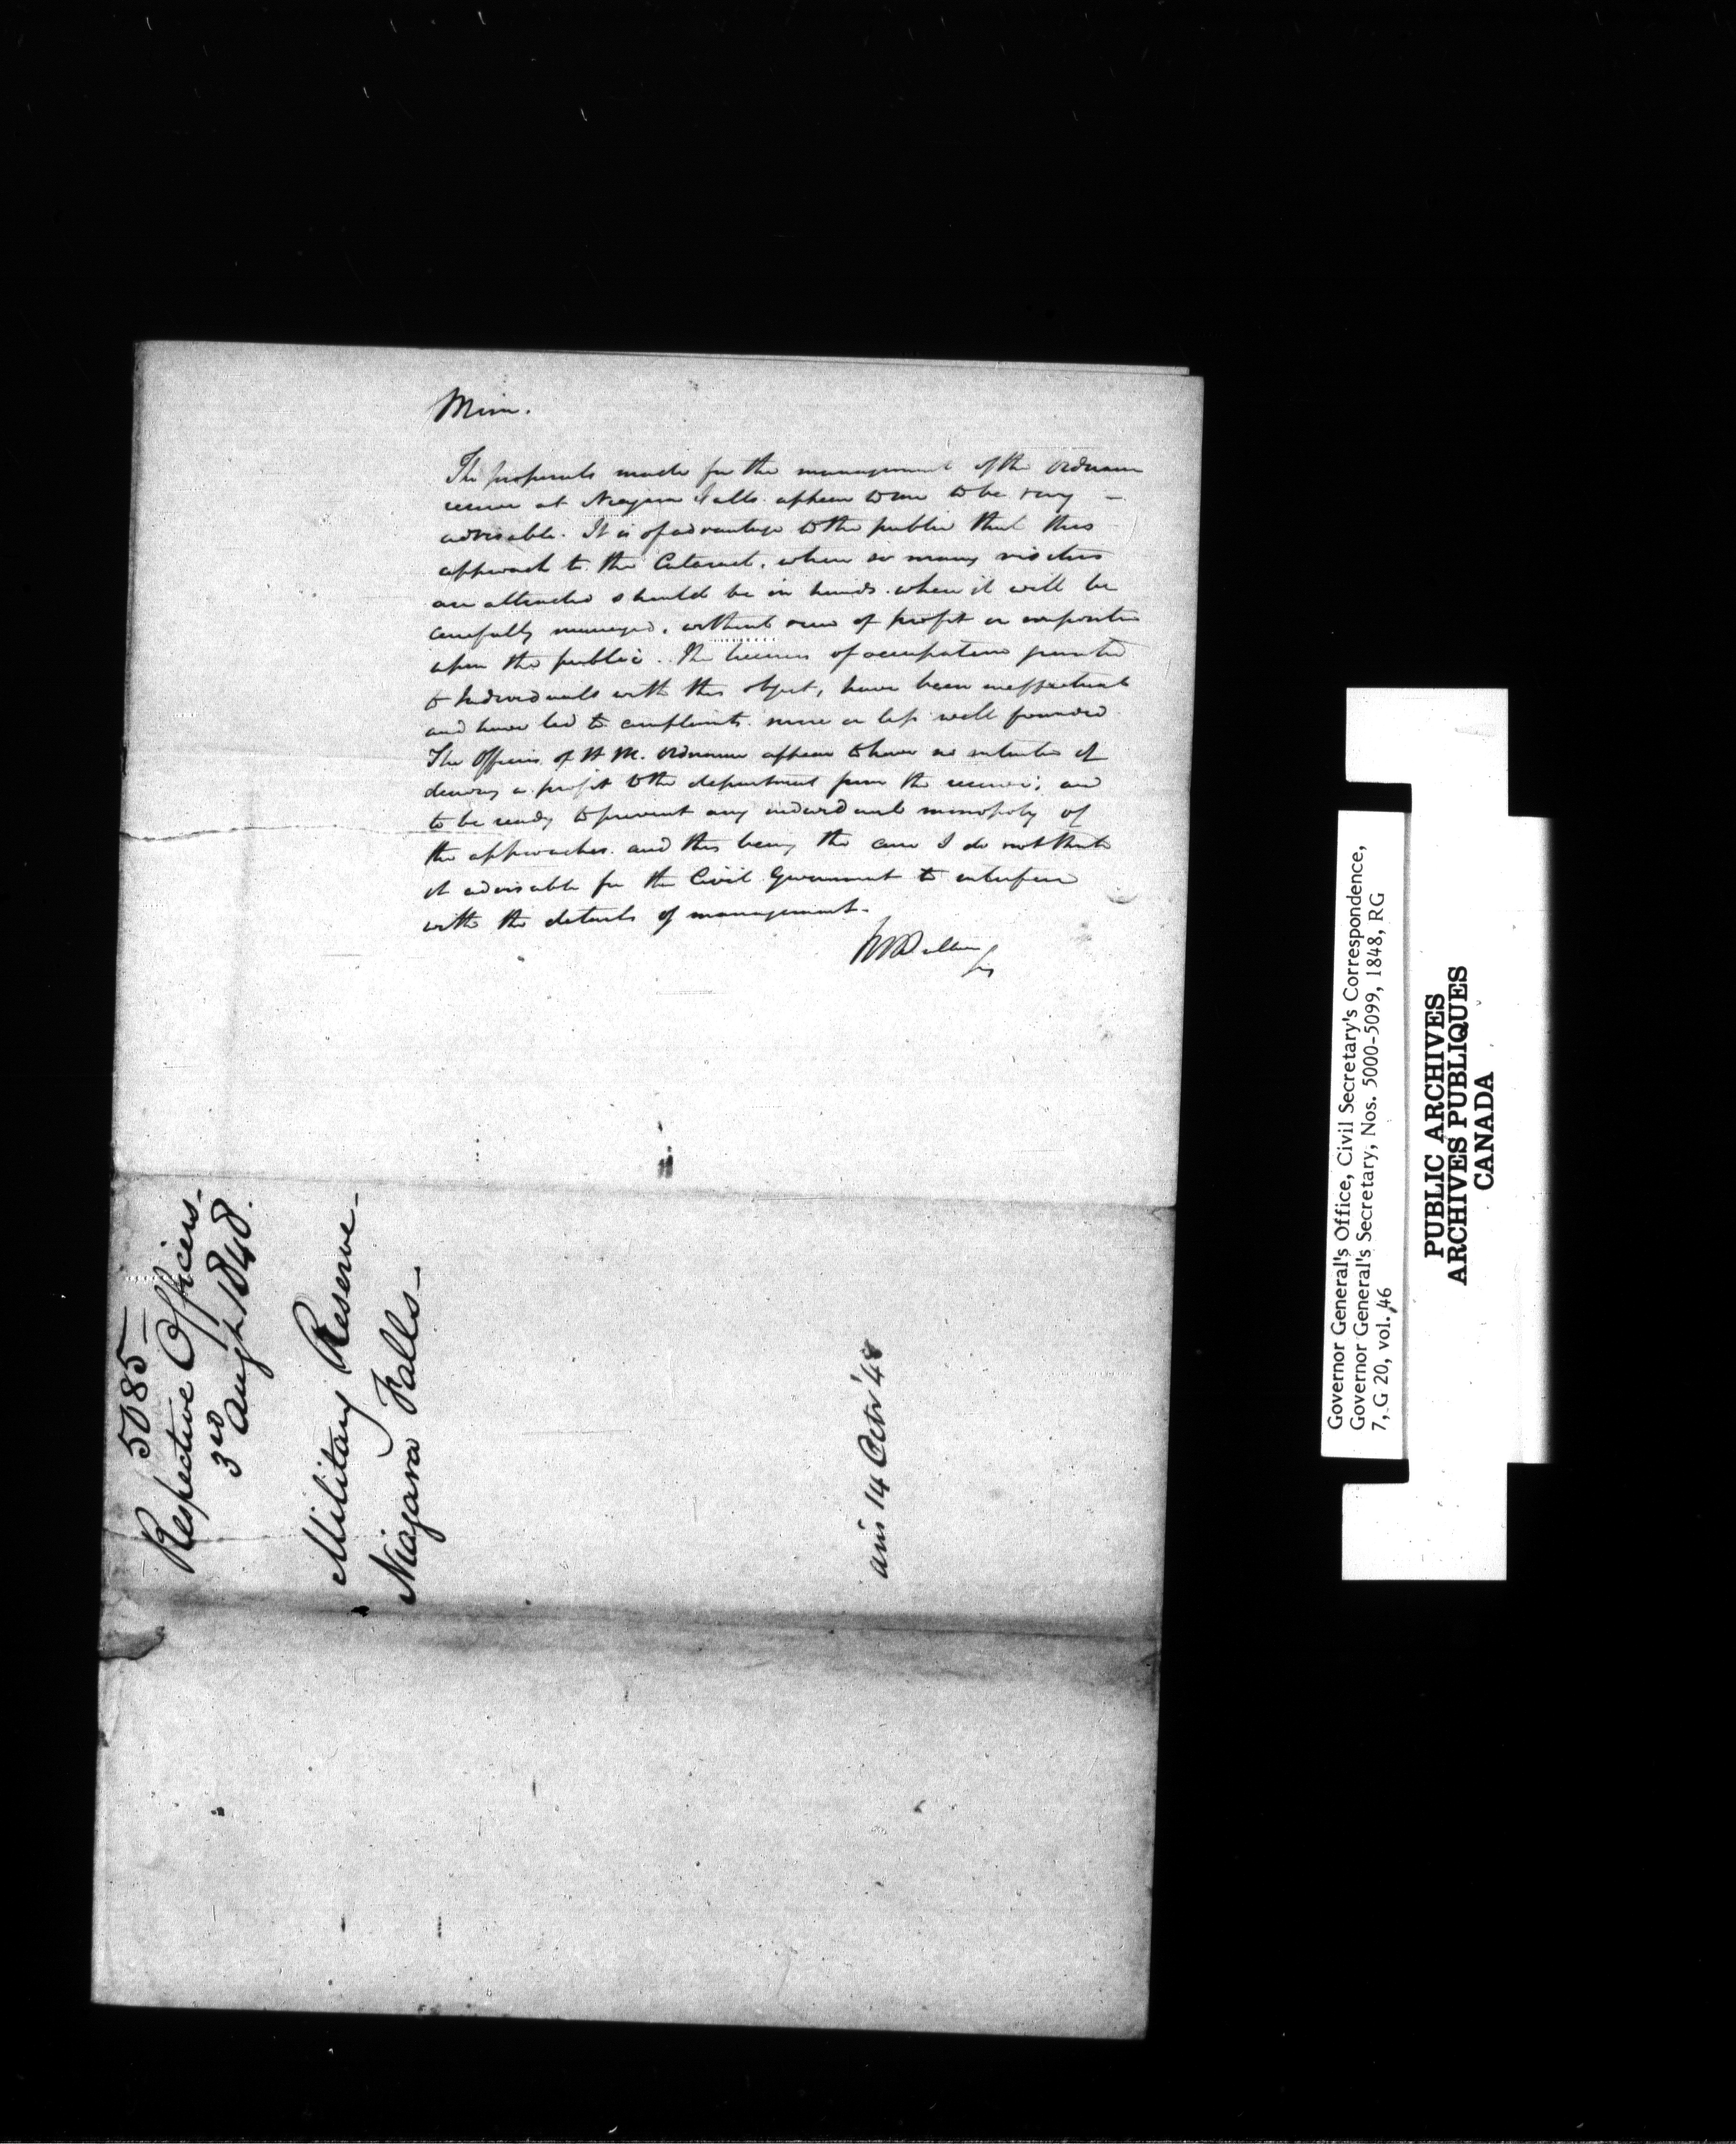 Mem.
The proposals made for the management of the Ordnance
reserve at Niagara Falls appear to me to be very
advisable. It is of advantage to the public that this
approach to the Cataract, where so many visitors
are attracted should be in hands where it will be
carefully managed, without view of profit or imposition
upon the public. The licenses of occupation granted
to Individuals with this object, have been ineffectual
and have led to complaints more or less well founded
The Officers of H M. Ordnance appear to have no intention of
deriving a profit to the department from the reserve; and
to be ready to prevent any individual monopoly of
the approaches. and this being the case I do not think
it advisable for the Civil Government to interfere
with the details of management.
5085
Respective Officers
3rd Augt 1848.
Military Reserve
Niagara Falls
14 Octr '48
Governor General's Office, Civil Secretary's Correspondence,
Governor General's Secretary, Nos. 5000-5099, 1848, RG
7, G 20, vol. 46
PUBLIC ARCHIVES
ARCHIVES PUBLIQUES
CANADA